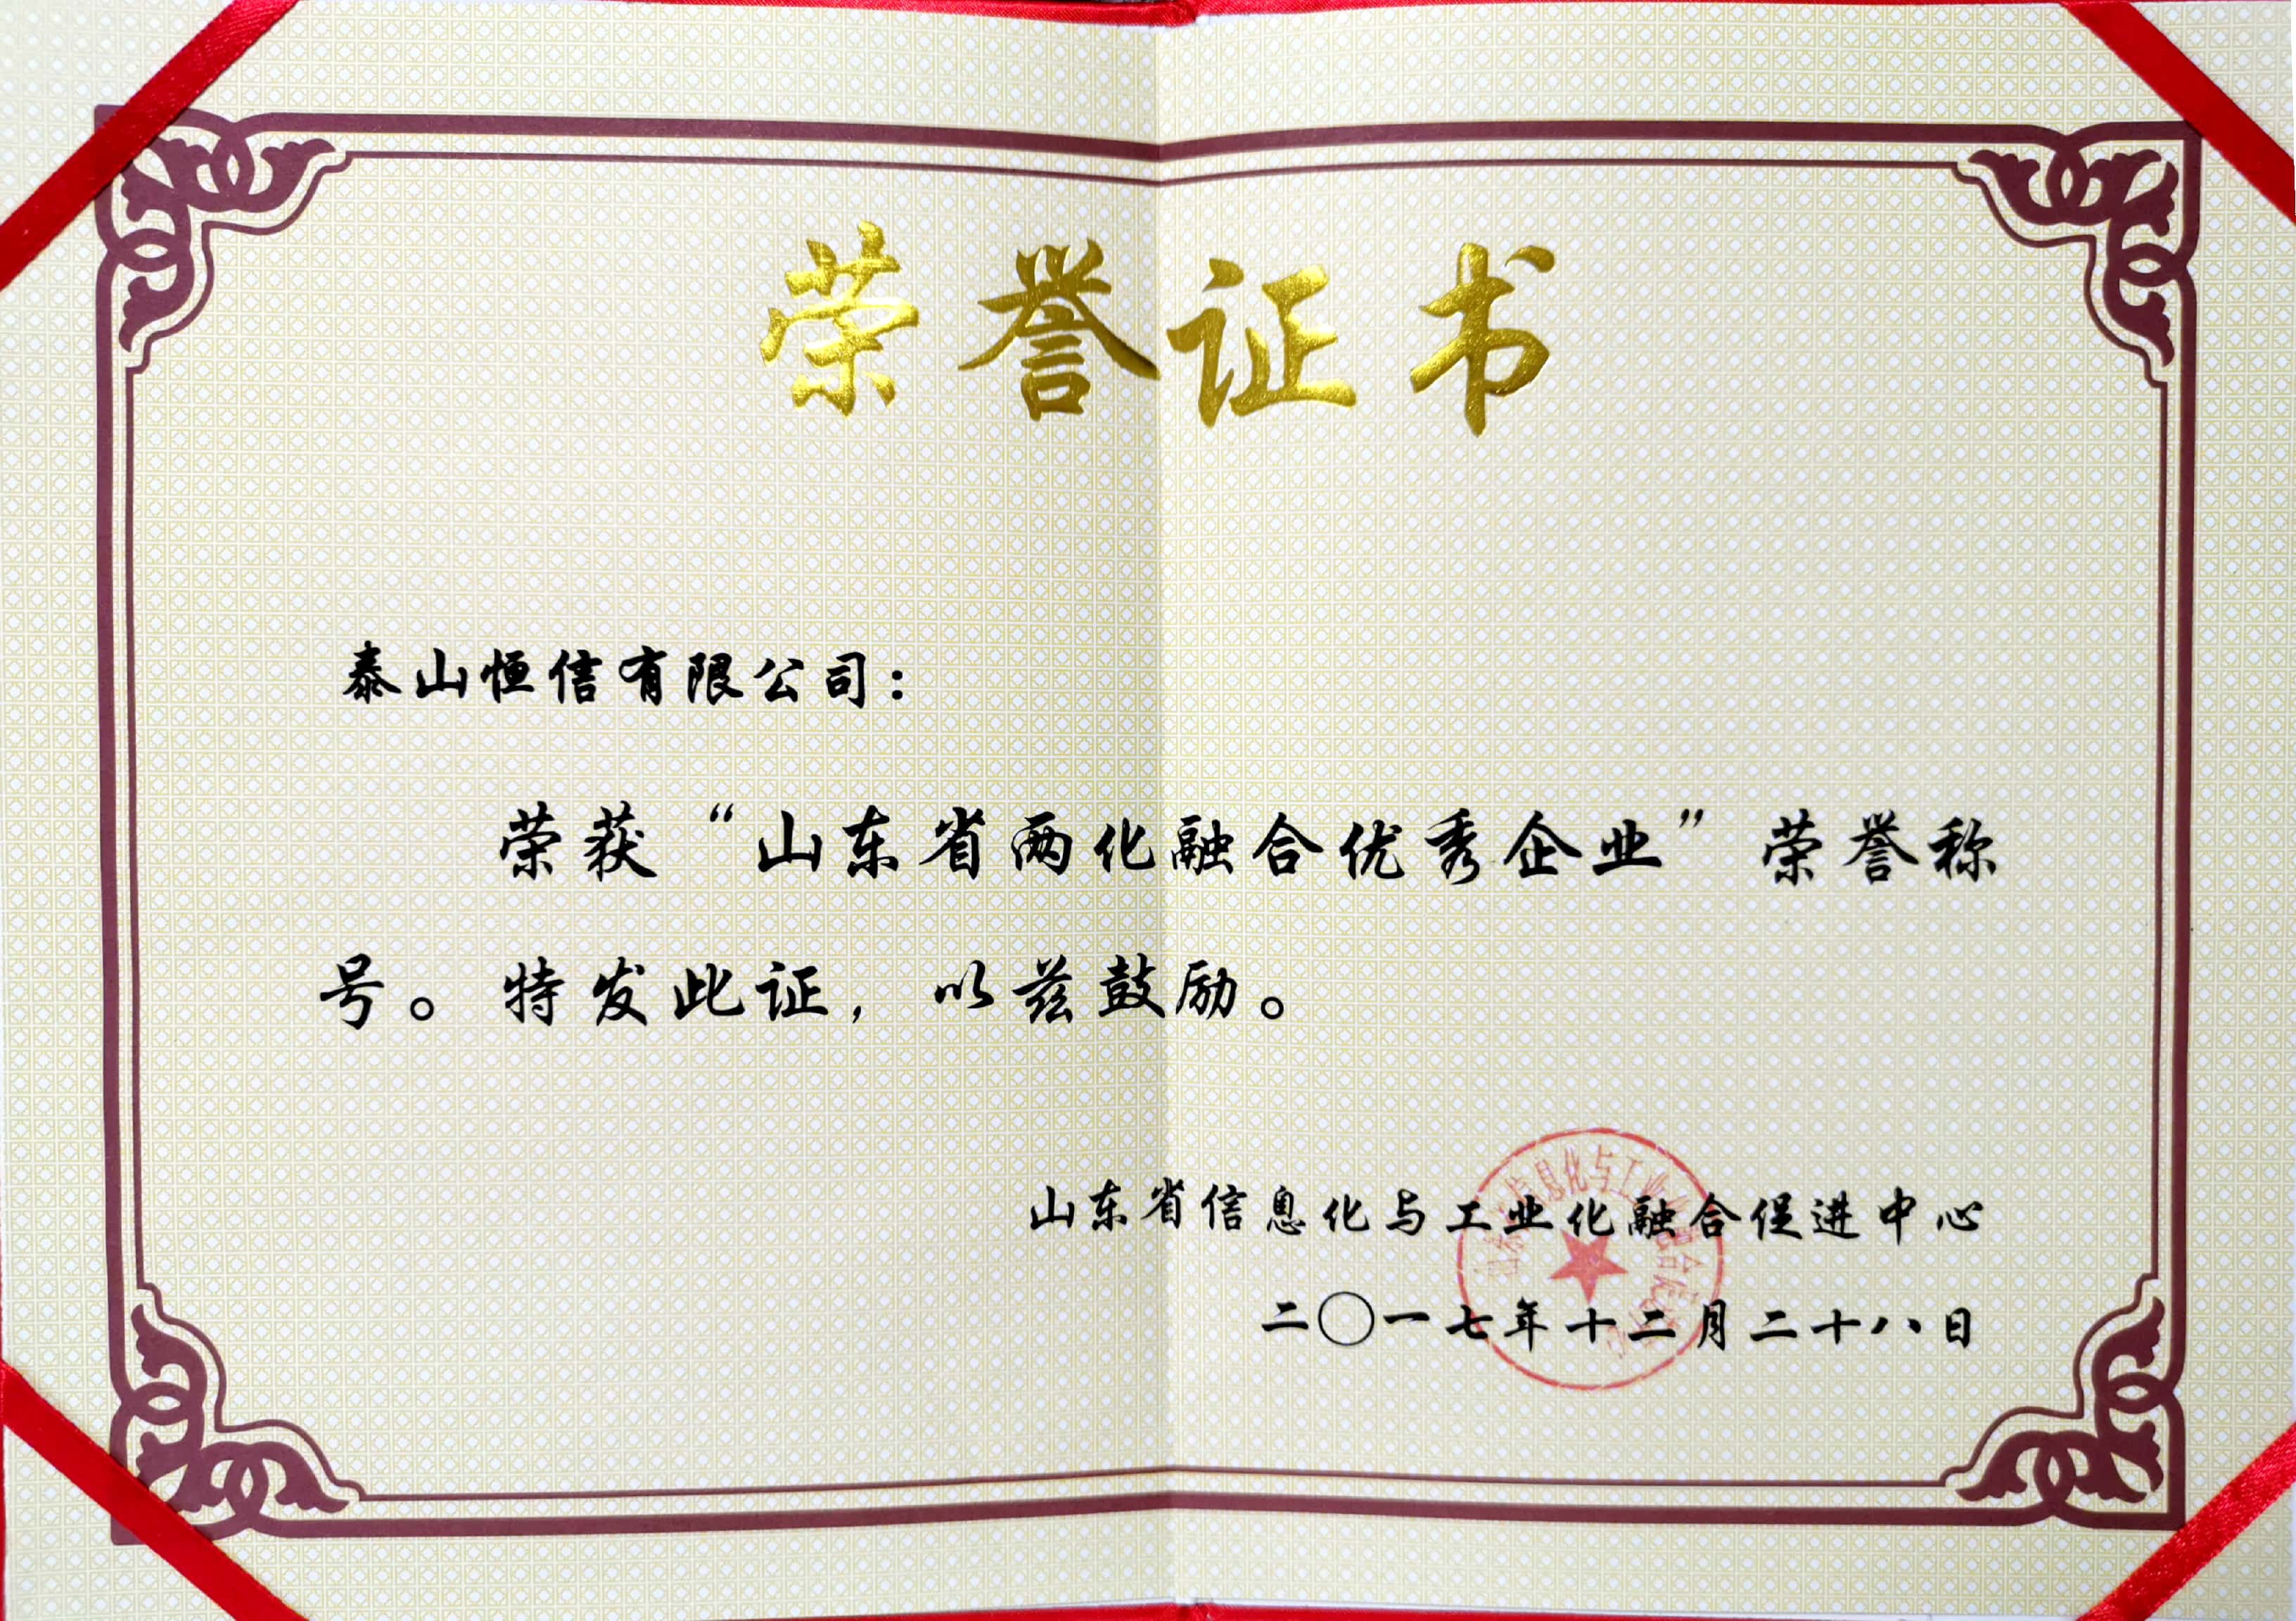 荣誉证书
泰山恒信有限公司：
荣获“山东省两化融合优秀企业”荣誉称
号。特发此证，以兹鼓励。
山东省信息化与工业化融合促进中心
二〇一七年十二月二十八日